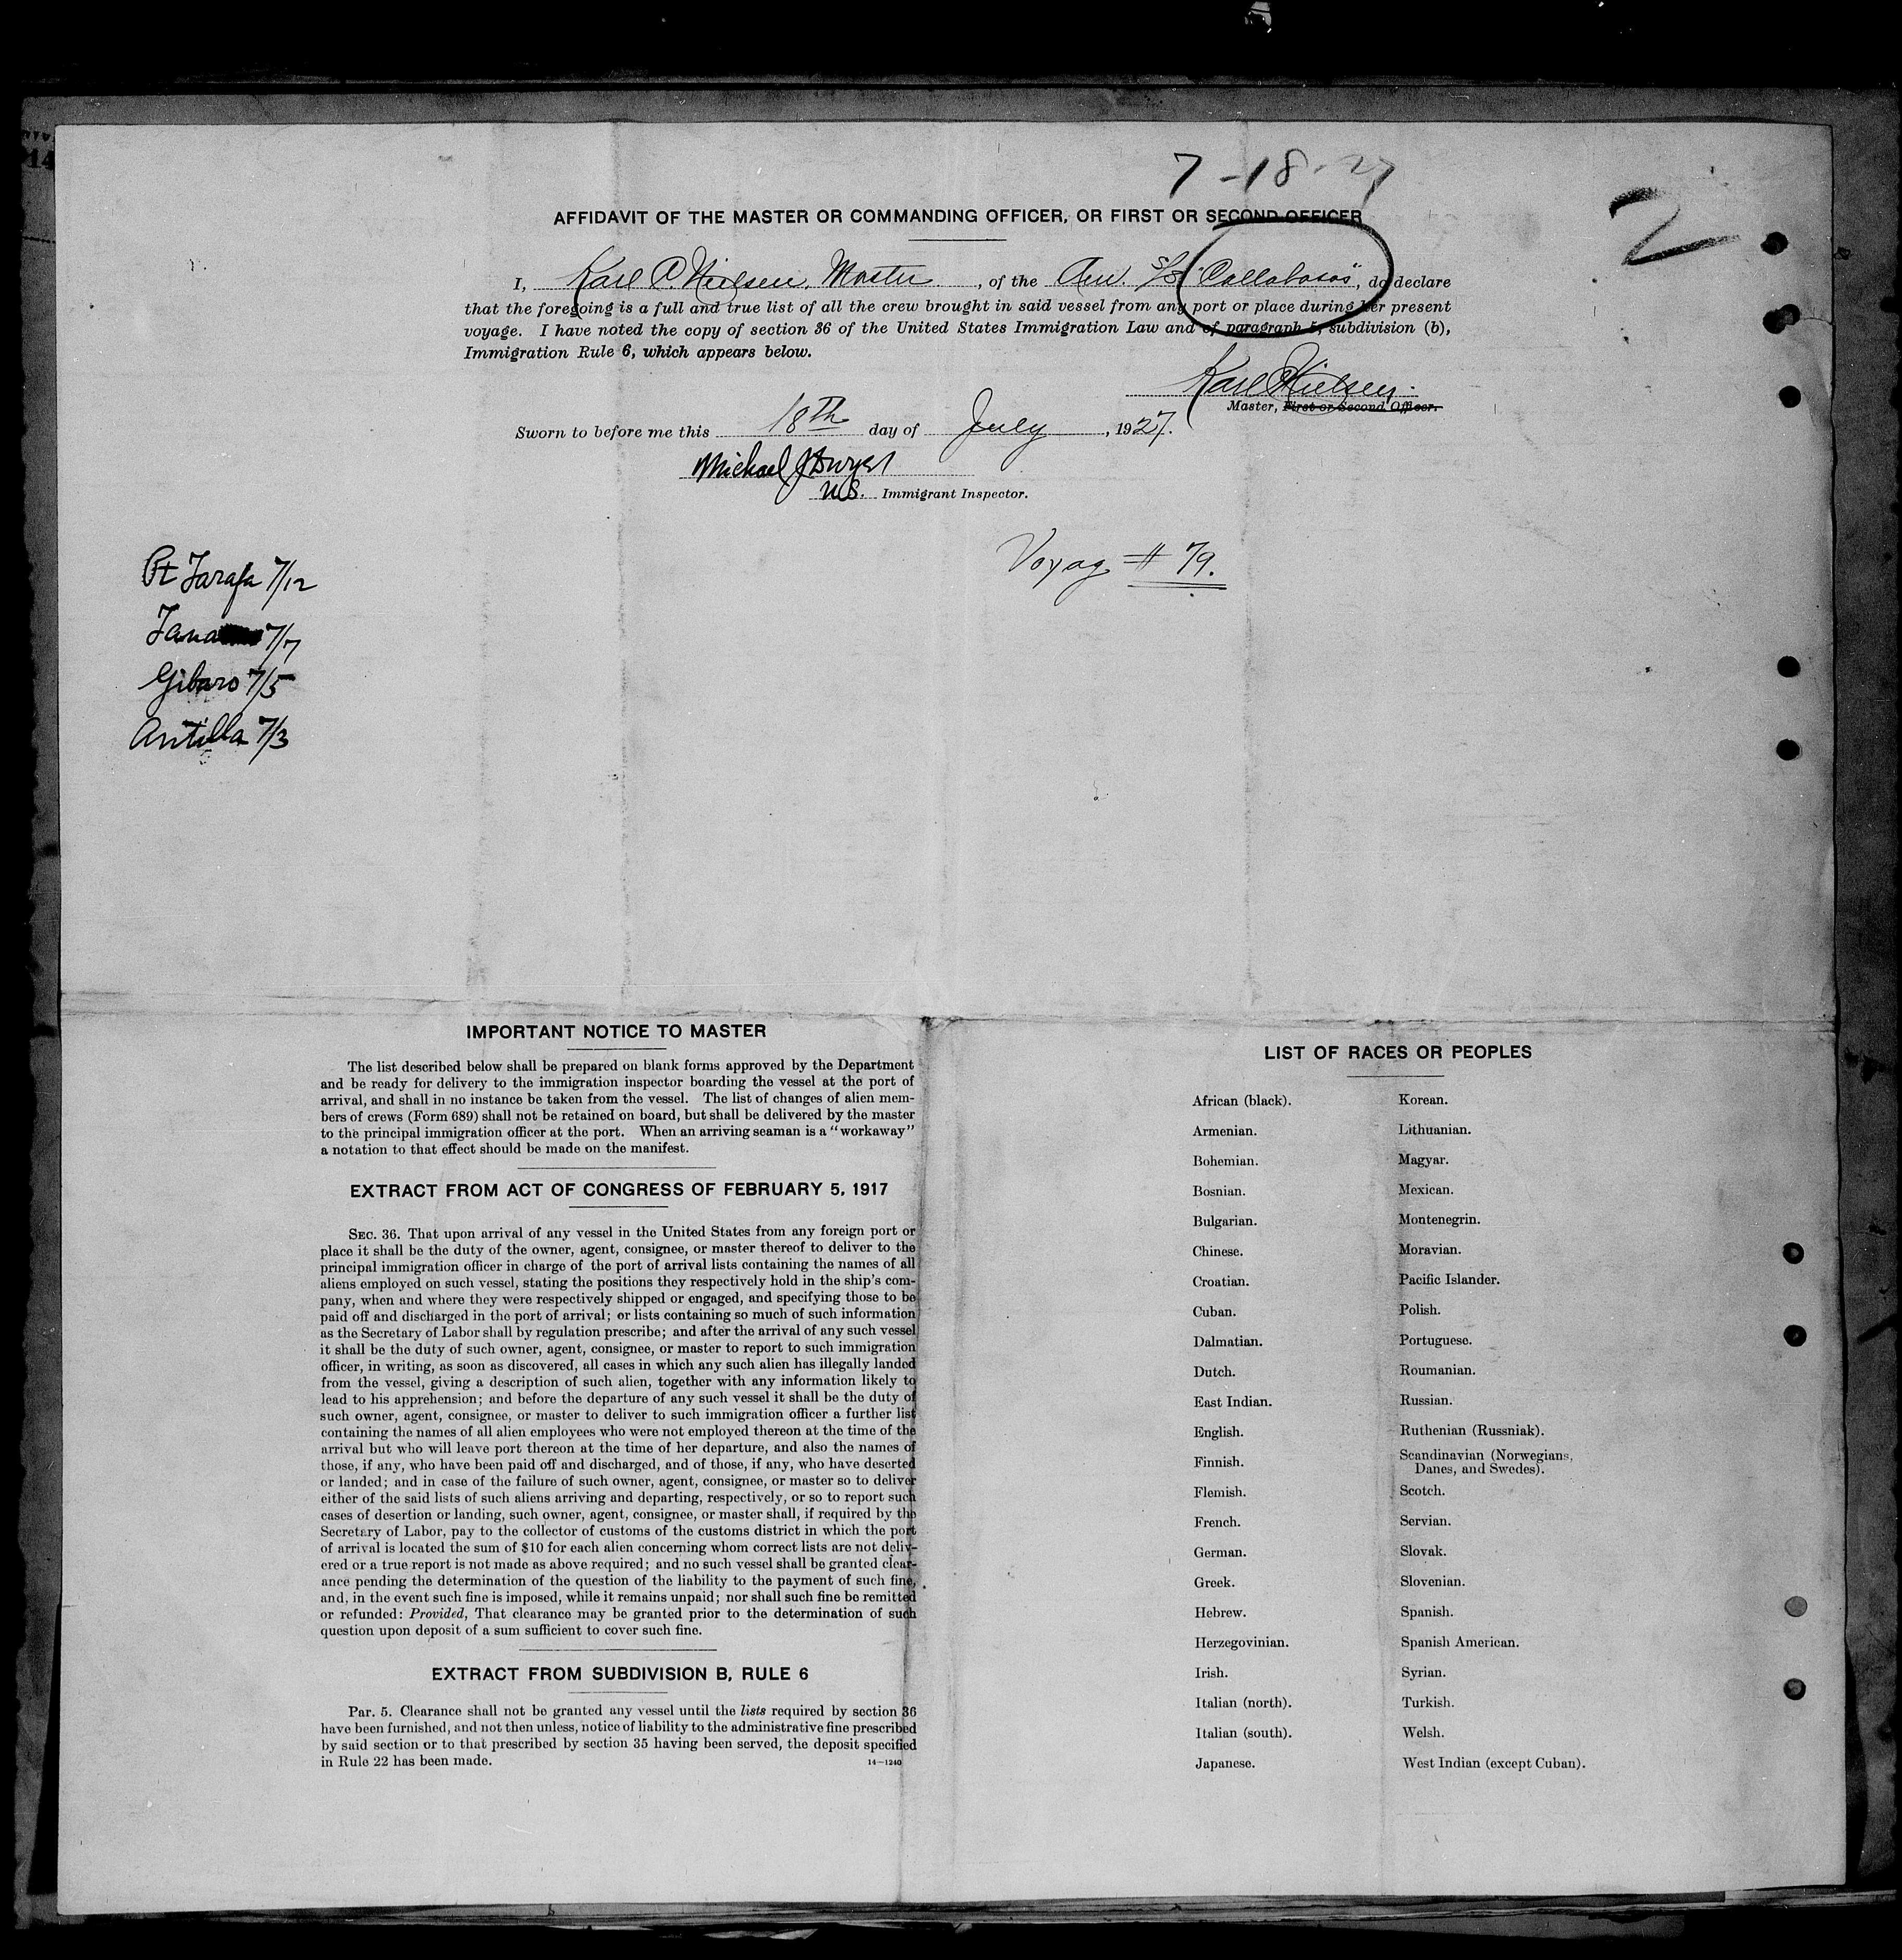 7-18-27
2
AFFIDAVIT OF THE MASTER OR COMMANDING OFFICER, OR FIRST OR SECOND OFFICER
I, Karl C. Nielsen, Master, of the Am. S/S "Callabasas", do declare
that the foregoing is a full and true list of all the crew brought in said vessel from any port or place during her present
voyage. I have noted the copy of section 36 of the United States Immigration Law and of paragraph 5, subdivision (b),
Immigration Rule 6, which appears below.
Karl C Nielsen
Master, First or Second Officer.
Sworn to before me this 18th day of July, 1927.
Michael J Dwyer
U.S. Immigrant Inspector.
Voyag # 79.
Pt Tarafa 7/12
Tana 7/7
Gibaro 7/5
Antilla 7/3
IMPORTANT NOTICE TO MASTER
The list described below shall be prepared on blank forms approved by the Department
and be ready for delivery to the immigration inspector boarding the vessel at the port of
arrival, and shall in no instance be taken from the vessel. The list of changes of alien mem-
bers of crews (Form 689) shall not be retained on board, but shall be delivered by the master
to the principal immigration officer at the port. When an arriving seaman is a "workaway"
a notation to that effect should be made on the manifest.
EXTRACT FROM ACT OF CONGRESS OF FEBRUARY 5, 1917
SEC. 36. That upon arrival of any vessel in the United States from any foreign port or
place it shall be the duty of the owner, agent, consignee, or master thereof to deliver to the
principal immigration officer in charge of the port of arrival lists containing the names of all
aliens employed on such vessel, stating the positions they respectively hold in the ship's com-
pany, when and where they were respectively shipped or engaged, and specifying those to be
paid off and discharged in the port of arrival; or lists containing so much of such information
as the Secretary of Labor shall by regulation prescribe; and after the arrival of any such vessel
it shall be the duty of such owner, agent, consignee, or master to report to such immigration
officer, in writing, as soon as discovered, all cases in which any such alien has illegally landed
from the vessel, giving a description of such alien, together with any information likely to
lead to his apprehension; and before the departure of any such vessel it shall be the duty of
such owner, agent, consignee, or master to deliver to such immigration officer a further list
containing the names of all alien employees who were not employed thereon at the time of the
arrival but who will leave port thereon at the time of her departure, and also the names of
those, if any, who have been paid off and discharged, and of those, if any, who have deserted
or landed; and in case of the failure of such owner, agent, consignee, or master so to deliver
either of the said lists of such aliens arriving and departing, respectively, or so to report such
cases of desertion or landing, such owner, agent, consignee, or master shall, if required by the
Secretary of Labor, pay to the collector of customs of the customs district in which the port
of arrival is located the sum of $10 for each alien concerning whom correct lists are not deliv-
ered or a true report is not made as above required; and no such vessel shall be granted clear-
ance pending the determination of the question of the liability to the payment of such fine,
and, in the event such fine is imposed, while it remains unpaid; nor shall such fine be remitted
or refunded: Provided, That clearance may be granted prior to the determination of such
question upon deposit of a sum sufficient to cover such fine.
EXTRACT FROM SUBDIVISION B, RULE 6
Par. 5. Clearance shall not be granted any vessel until the lists required by section 36
have been furnished, and not then unless, notice of liability to the administrative fine prescribed
by said section or to that prescribed by section 35 having been served, the deposit specified
in Rule 22 has been made.
14—1240
LIST OF RACES OR PEOPLES
African (black).
Armenian.
Bohemian.
Bosnian.
Bulgarian.
Chinese.
Croatian.
Cuban.
Dalmatian.
Dutch.
East Indian.
English.
Finnish.
Flemish.
French.
German.
Greek.
Hebrew.
Herzegovinian.
Irish.
Italian (north).
Italian (south).
Japanese.
Korean.
Lithuanian.
Magyar.
Mexican.
Montenegrin.
Moravian.
Pacific Islander.
Polish.
Portuguese.
Roumanian.
Russian.
Ruthenian (Russniak).
Scandinavian (Norwegians,
Danes, and Swedes).
Scotch.
Servian.
Slovak.
Slovenian.
Spanish.
Spanish American.
Syrian.
Turkish.
Welsh.
West Indian (except Cuban).